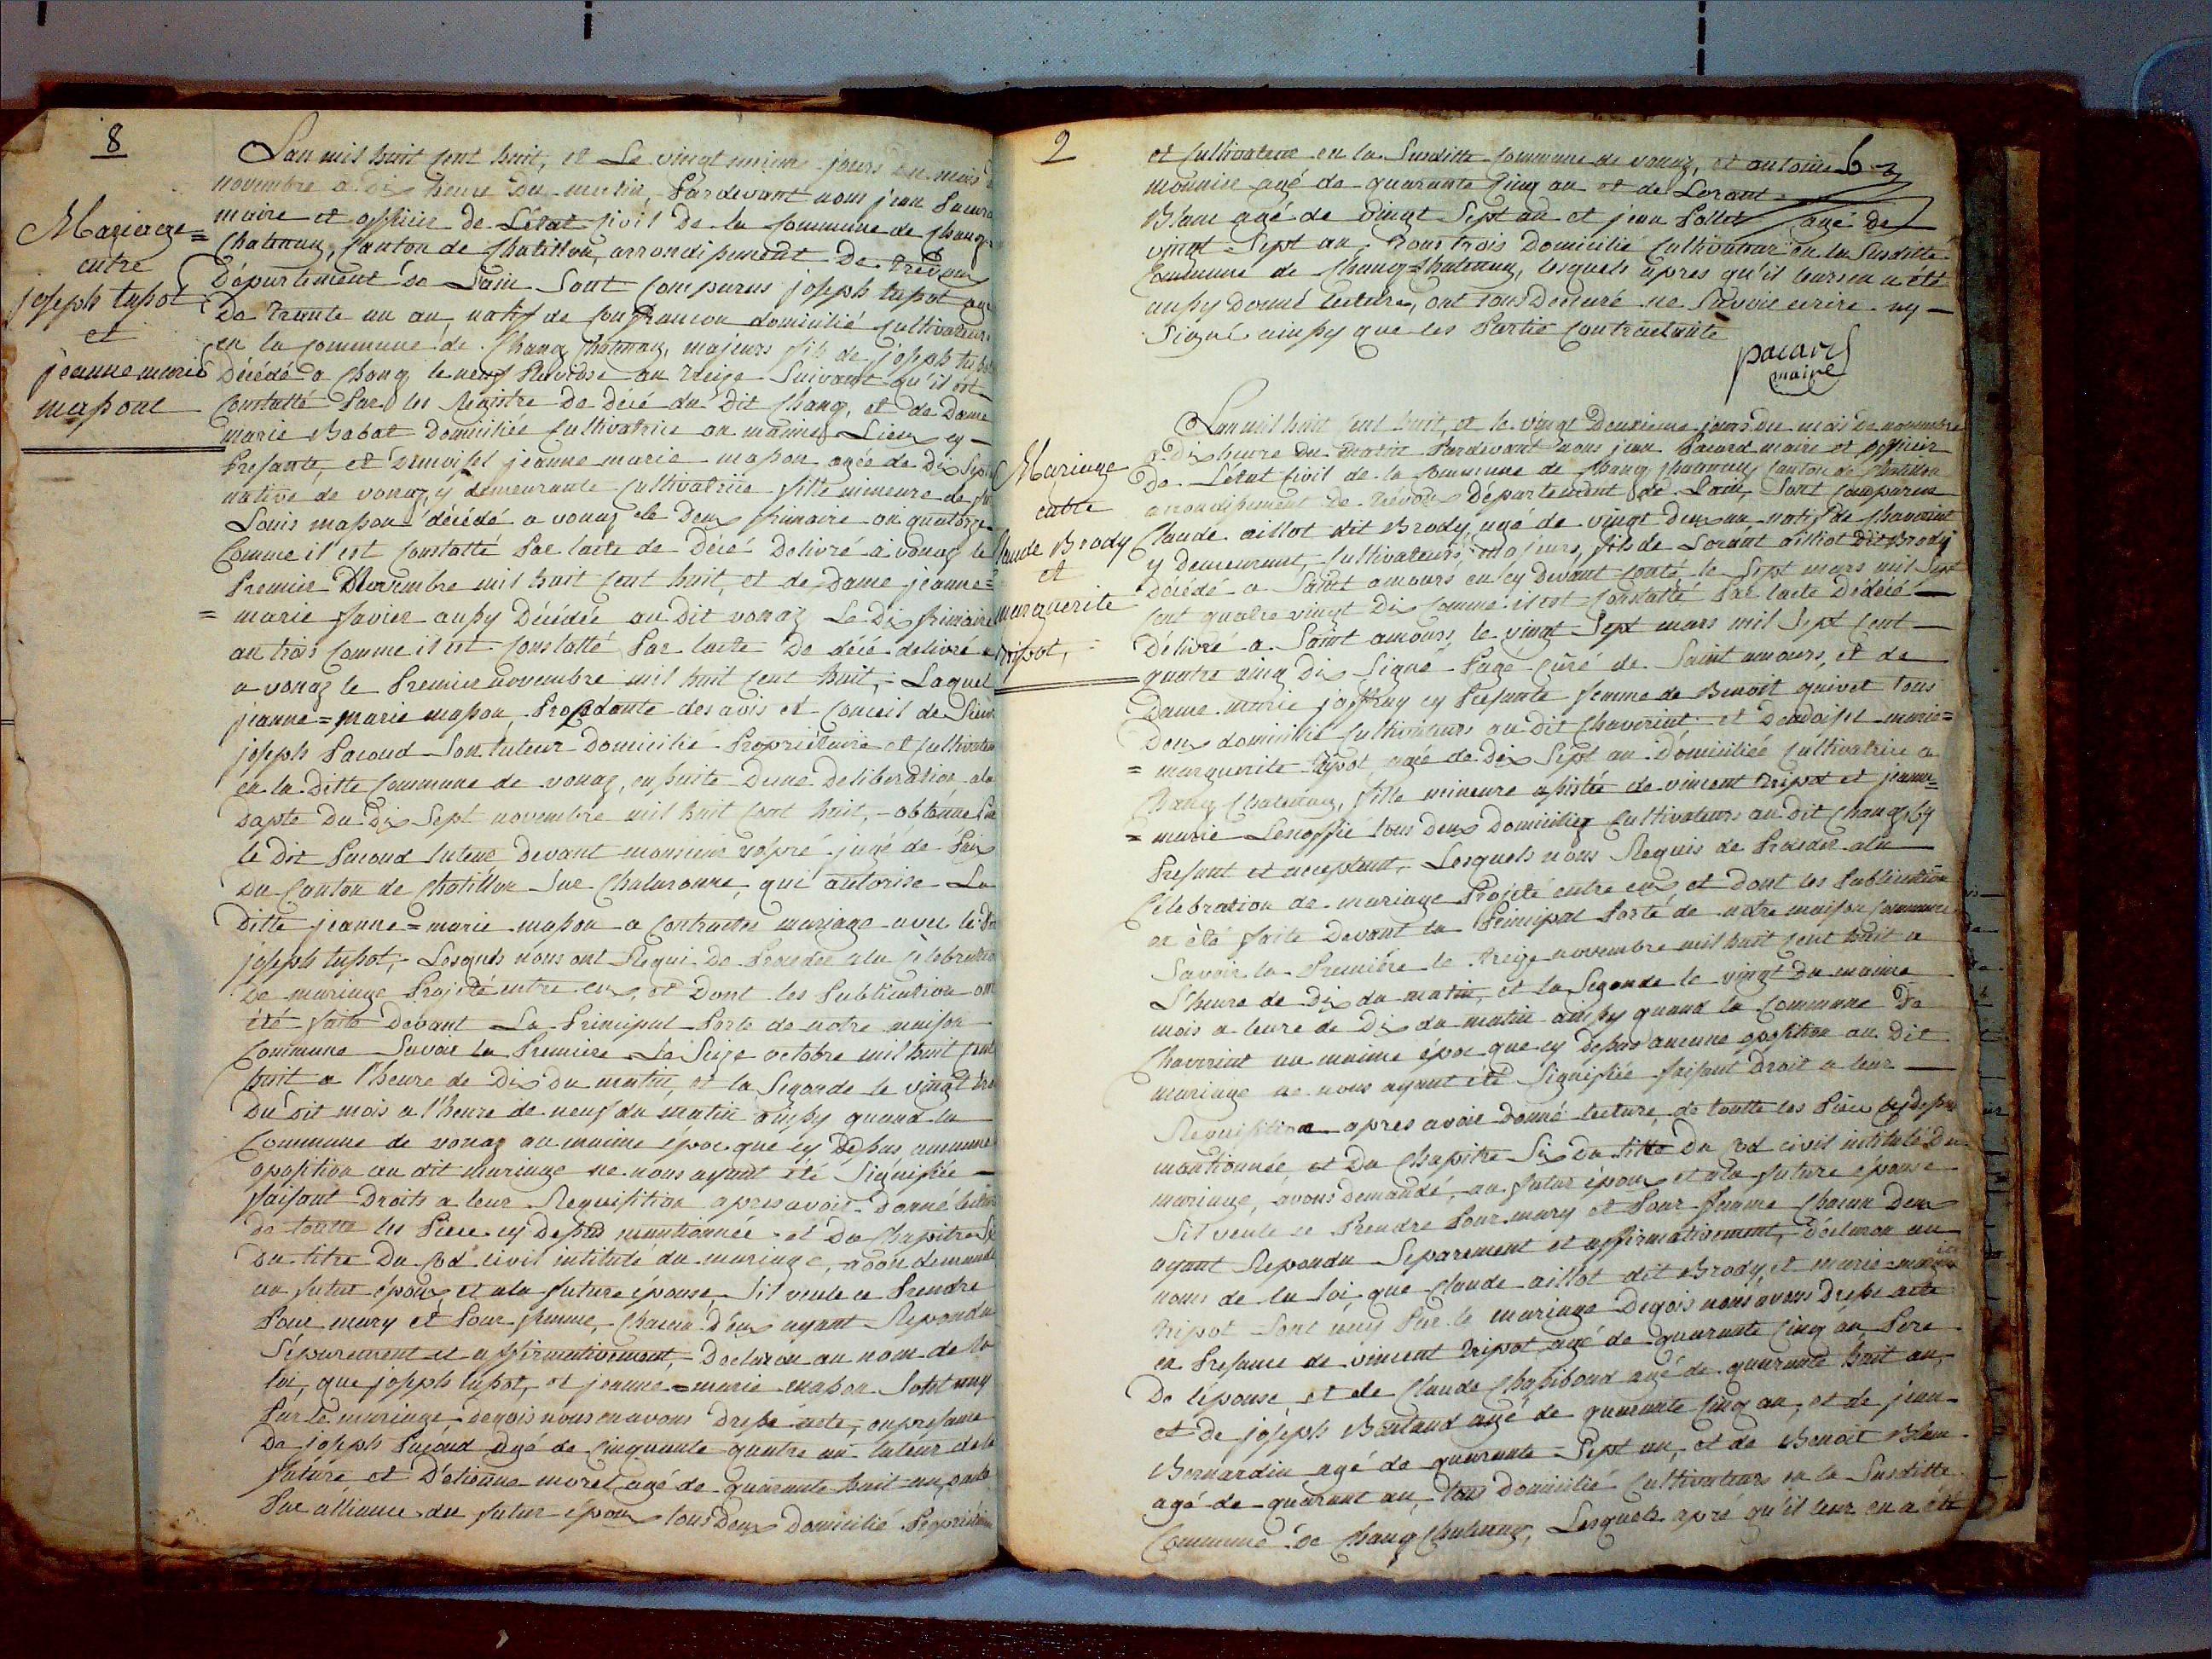 8
Mariage
entre
joseph tupot
et
jeanne marie
maßon
Lan mil huit cent huit, et Le vingt unieme jours du mois
novembre a dix heure du matin, Pardevant nous jean Pacard
maire et officier de L'état civil De la Commune de Chanoz
Chatenay, Canton de Chatillon, arrondisement De trévoux
Département de Lain Sont Comparus joseph tupot agé
De trante un an, natif de domicilié Cultivateur
en la Commune de Chanoz Chatenay, majeurs fils de joseph tupot
Décédé a Chanoz le neuf Pluviose an treize Suivant qu'il est
Constatté Par les Registre De décé du Dit Chanoz, et de Dame
marie Babat Domiciliée Cultivatrice au maime Lieux cy
Presante, et Demoisel jeanne marie maßon agée de Dix Sept
native de vonaz, y demeurante Cultivatrice fille mineure de
Louis maßon décédé a vonaz le Deux frimaire an quatorze
Comme il est Constatté Par lacte de Décé Delivré a vonaz le
Premier Novembre mil huit Cent huit, et de Dame jeanne=
= marie favier aussy Décédée au Dit vonaz Le Dix frimaire
an trois Comme il est Constatté Par lacte De décé delivré
a vonaz le Premier novembre mil huit Cent huit, - Laquel
jeanne=marie maßon, Procédante des avis et Conceil de Sieur
joseph Pacoud Son tuteur Domicilié Propriétaire et Cultivateur
en la Ditte Commune de vonaz, en suite Dune Deliberation a la
Dapte Du Dix Sept novembre mil huit Cent huit, - obtenue Par
le Dit Pacoud tuteur Devant monsieur juge de Paix
Du Canton de Chatillon Sur Chalaronne, qui autorise La
ditte jeanne=marie maßon a Contracter mariage avec le Dit
joseph tupot, - Lesquels nous ont Requi De Proceder a la Célébration
De mariage Projeté entre eux, et Dont les Publication ont
été faite Devant La Principal Porte de notre maison
Commune Savoir la Premiere Le Seize octobre mil huit Cent
huit a l'heure de Dix du matin, et la Segonde le vingt trois
Du dit mois a l'heure de neuf du matin ainsy quand la
Commune de vonaz au maime époc que cy Desus, aucunne
oposition au dit mariage ne nous ayant été Signifiée
faisant Droits a leur Requisition apres avoir Donné lecture
de toutte les Piece cy Desus mentionnée et Du Chapitre Six
Du titre Du Cod civil intitulé du mariage, avon demandé
au futur époux et ala future épouse, Sil veule ce Prendre
Pour mary et Pour femme, Chacun D'eux ayant Repondu
Séparement et affirmativement, - Declaron au nom de la
loi, que joseph tupot, et jeanne=marie maßon Sont uny
Par le mariage dequois nous en avons Dresse acte, en presance
De joseph Pacoud agé de Cinquante quatre an tuteur de la
future et D'etienne morel agé de quarante huit an, oncle
Par alliance du futur époux tous Deux Domicilié Proprietaire
2
et Cultivateur en la Susditte Commune de vonaz, et antoine
agé de quarante Cinq an et de Lorant
Blanc agé de vingt Sept an et jean Pollet agé de
vingt Sept an, tous trois Domicilié Cultivateur en la Susditte
Commune de Chanoz Chatenay, lesquels apres qu'il leur en a été
aussy Donné lecture, ont tous Declaré ne Savoir ecrire ny
Signé ainsy que les Partie Contractante
pacard
maire
Mariage
entre
Claude Brody
et
marguerite
tripot,
Lan mil huit Cent huit, et le vingt Deuxieme jours Du mois De novembre
a Dix heure Du matin Pardevant nous jean Pacard maire et officier
De Létat Civil de la Commune de Chanoz Chatenay Canton de Chatillon
arrondisement De trévoux Département de Lain, Sont Comparus
Claude aillot dit Brody, agé de vingt Deux an natif de Chaveriat
y Demeurant, Cultivateurs, Majeurs, fils de Lorant aillot Dit Brody
Décédé a Saint amours en cy Devant Conté le Sept mars mil Sept
Cent quatre vingt Dix Comme il est Constatté Par lacte Dédécé
Délivré a Saint amours, le vingt Sept mars mil Sept Cent
quatre ving Dix Signé Pagé Curé de Saint amours, et de
Dame marie joffray cy Presante femme de Benoit quivet tous
Deux domicilié Cultivateurs au Dit Chaveriat et Demoisel marie=
= marguerite tripot, agée de Dix Sept an Domiciliée Cultivatrice a
Chanoz Chatenay, fille mineure assistée de vincent tripot et jeanne=
= marie tous Deux Domiciliez Cultivateurs au Dit Chanoz, Cy
Presant et acceptant, Lesquels nous Requis de Proceder ala
Célébration de mariage Projeté entre eux, et Dont les Publication
on été faite Devant la Principal Porte de notre maison Commune
Savoir la Premiére le treize novembre mil huit Cent huit a
L'heure de Dix du matin, et la Segonde le vingt Du maime
mois a leure de Dix du matin ainsy quand la Commune De
Chaveriat au maime époc que cy Desus aucune oposition au Dit
mariage ne nous ayant été Signifiée faisant Droit a leur
Requisition apres avoir Donné lecture, de toutte les Piece cy Desus
mantionnée, et Du Chapitre Six Du titre Du Cod civil intitulé Du
mariage, avons Demandé, au futur époux et ala future épouse
Sil veule ce Prendre Pour mary et Pour femme Chacun Deux
ayant Repondu Separement et affirmativement, Déclaron au
nom de la loi que Claude aillot dit Brody, et marie
tripot Sont uny Par le mariage Dequois nous avons Dresse acte
en Presance de vincent tripot agé de quarante Cinq an Pere
De lépouse et de Claude Chaßiboud agé de quarante huit an,
et De joseph Bontaud agé de quarante Cinq an, et de jean
Bernardin agé de quarante Sept an, et de Benoit Blanc
agé de quarant an, tous Domicilié Cultivateurs en la Susditte
Commune de Chanoz Chatenay, Lesquels apré qu'il leur en a été